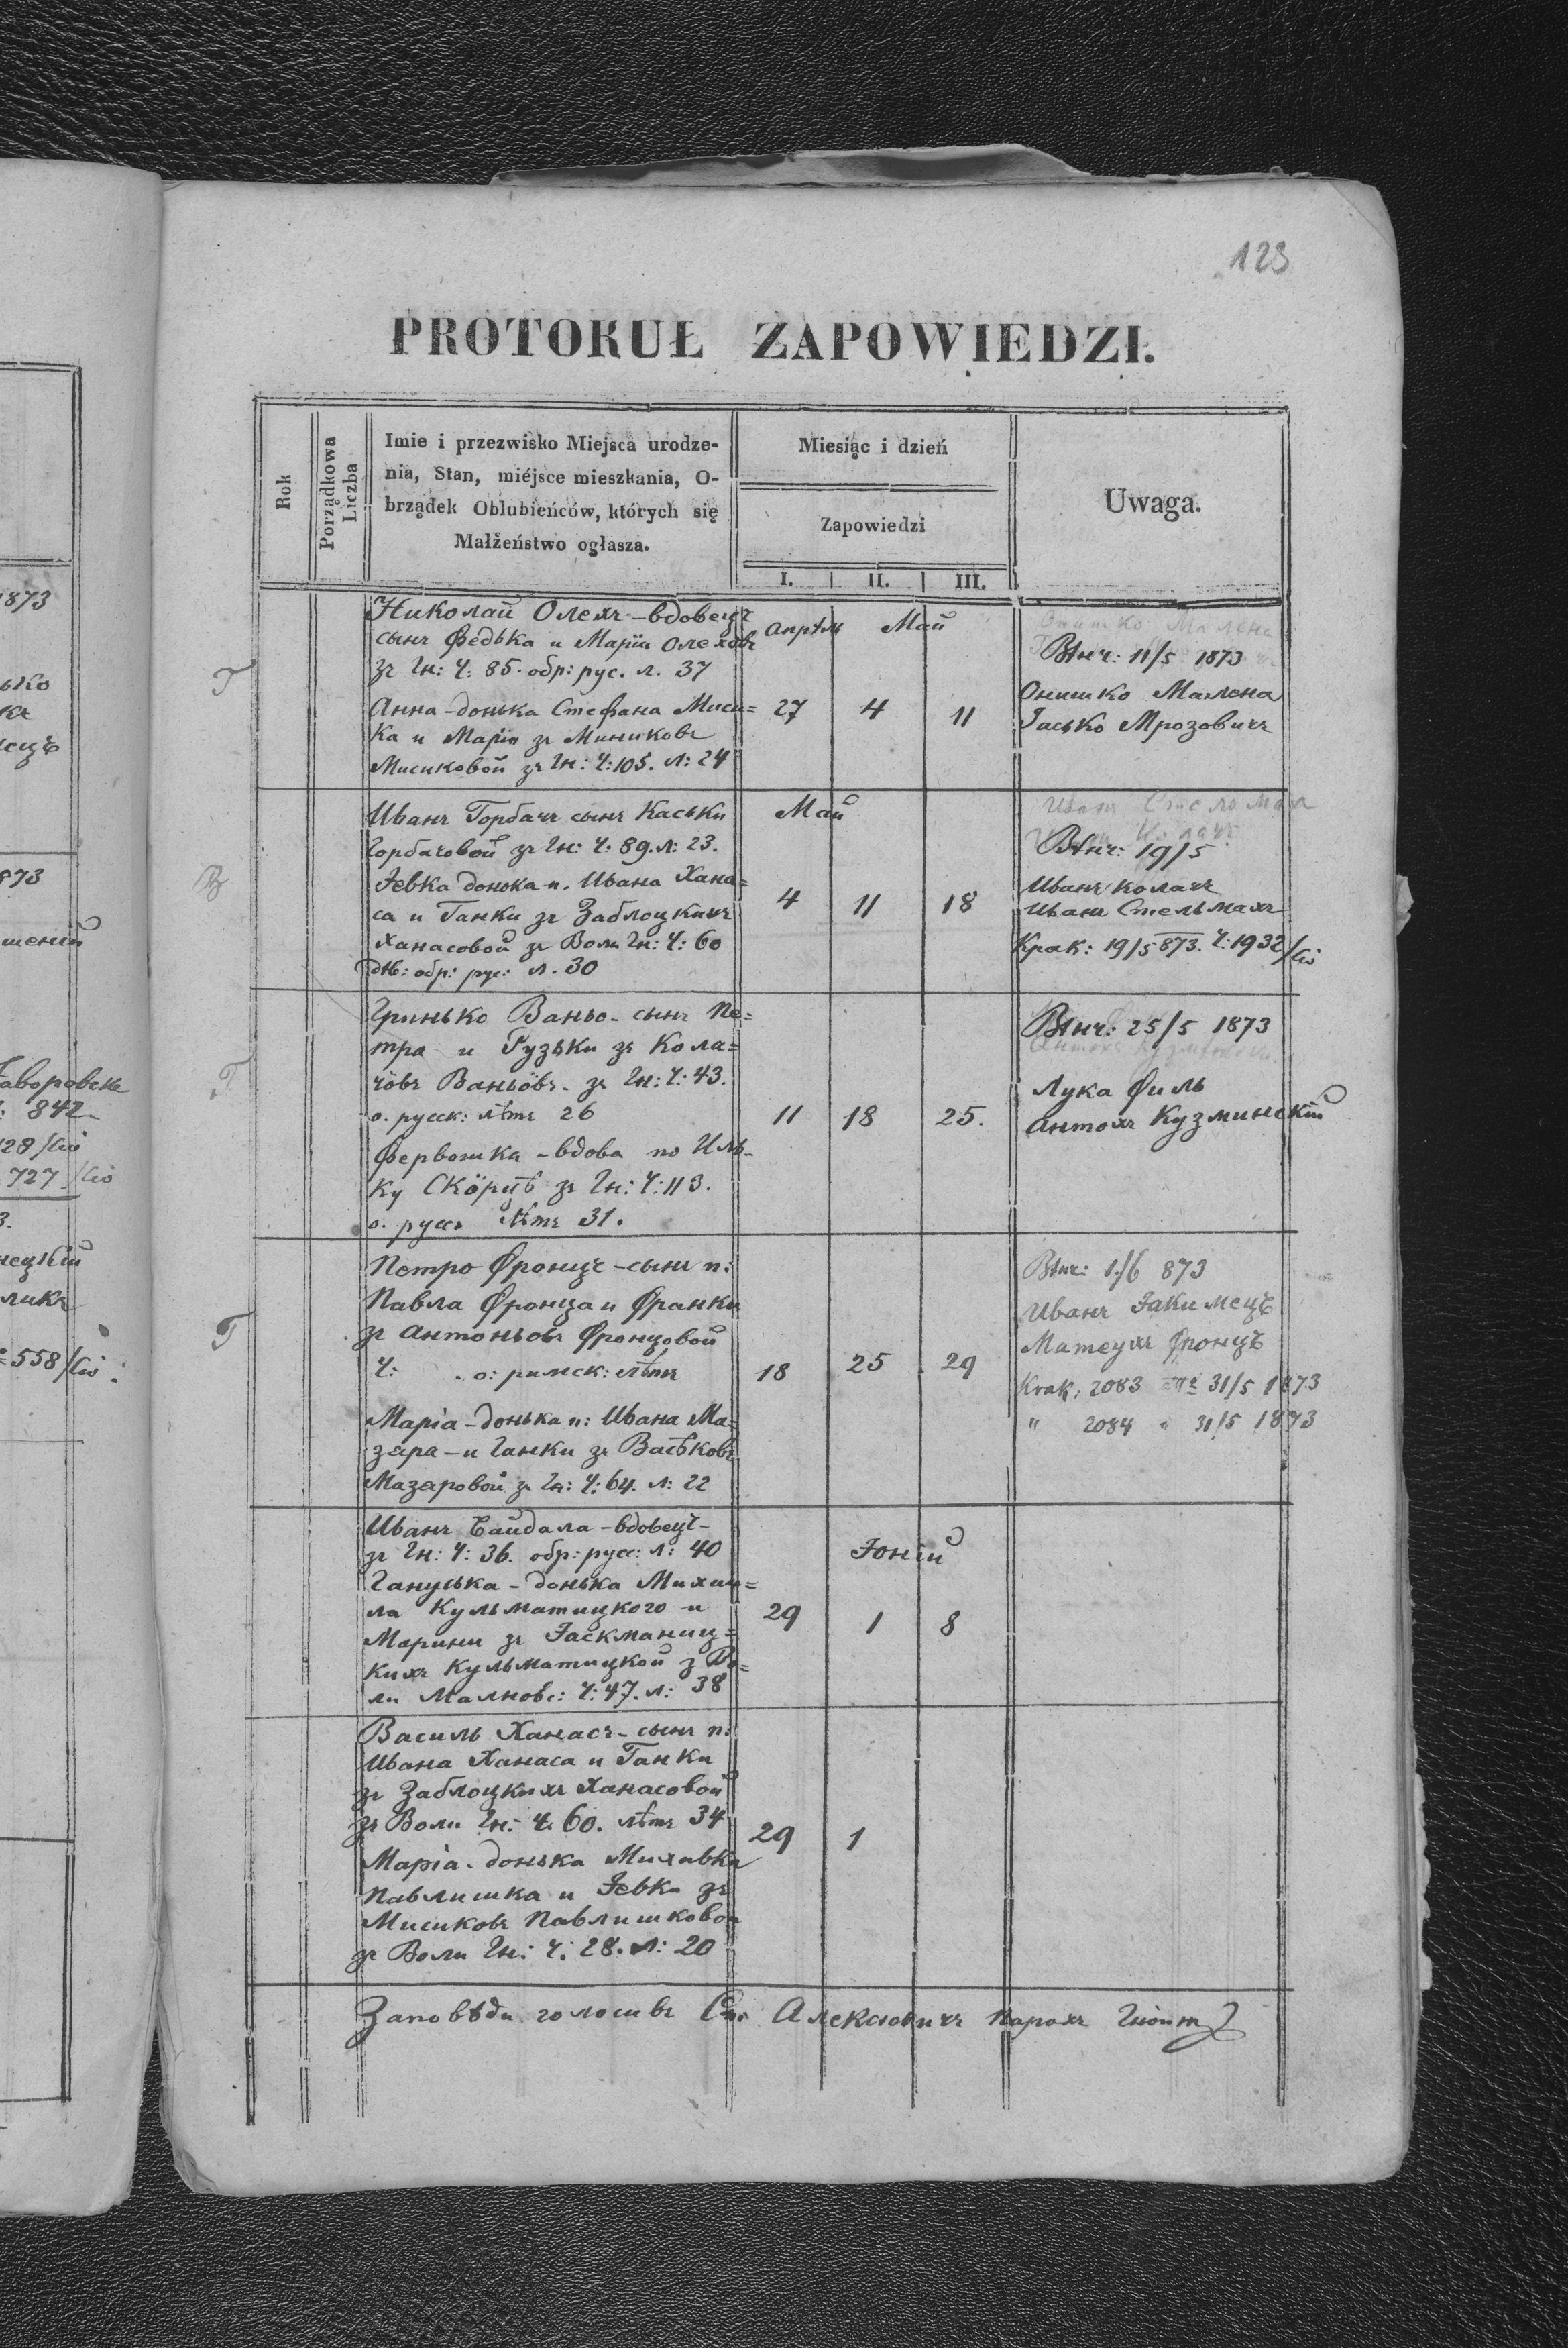 123
PROTOKUŁ ZAPOWIEDZI.
Rok
Porządkowa Liczba
Imie i przezwisko Miejsca urodze-
nia, Stan, miéjsce mieszkania, O-
brządek Oblubieńców, których się
Małżeństwo ogłasza.
Miesiąc i dzień
Zapowiedzi
I. II. III.
Uwaga.
Николай Олехъ - вдовецъ
сынъ Федька и Маріи Олеховъ
зъ Гн: Ч: 85. обр: рус. л. 37
Анна - донька Стефана Миси=
ка и Марія зъ Миниковъ
Мисиковой зъ Гн: Ч: 105. л: 24
Г
Апрѣль Май
27 4 11
Вѣнч: 11/5 1873
Онишко Малена
Іасько Мрозовичъ
Иванъ Горбачъ сынъ Каськи
Горбачовой зъ Гн: Ч: 89. л: 23.
Іевка донька п. Ивана Хана=
са и Ганки зъ Заблоцкихъ
Ханасовой зъ Воли Гн: Ч: 60
обр: рус: л. 30
В
Май
4 11 18
Вѣнч: 19/5
Иванъ Колачъ
Иванъ Стельмахъ
Крак: 19/5 873. Ч: 1932
Гринько Ваньо - сынъ Пе=
тра и Рузьки зъ Кола=
чôвъ Ваньôвъ - зъ Гн: Ч: 43.
о. русск: лѣтъ 26
Фервошка - вдова по Иль-
ку Скôрцѣ зъ Гн: Ч: 113.
о. русс. лѣтъ 31.
Г
11 18 25.
Вѣнч: 25/5 1873
Лука Филь
Антохъ Кузминскій
Петро Фронцъ - сынъ п:
Павла Фронца и Франки
зъ Антоньовъ Фронцовой
Ч: . о: римск: лѣтъ
Марія - донька п: Ивана Ма=
зара - и Ганки зъ Васѣковъ
Мазаровой зъ Гн: Ч: 64. л: 22
Г
18 25 29
Вѣнч: 1/6 873
Иванъ Іакимецъ
Матеухъ Фронцъ
Krak: 2083 31/5 1873
" 2084 " 31/5 1873
Иванъ Байдала - вдовецъ -
зъ Гн: Ч: 36. обр: русс: л: 40
Гануська - донька Михаи=
ла Кульматицкого и
Марини зъ Іаскманиц=
кихъ Кульматицкой з Во=
ли Малнове: Ч: 47. л: 38
Іоній
29 1 8
Василь Ханасъ - сынъ п:
Ивана Ханаса и Ганки
зъ Заблоцкихъ Ханасовой
зъ Воли Гн: ч. 60. лѣтъ 34
Марія - донька Михавка
Павлишка и Іевки зъ
Мисиковъ Павлишковой
зъ Воли Гн: ч: 28. л: 20
29 1
Заповѣди голосивъ Алексевичъ парохъ